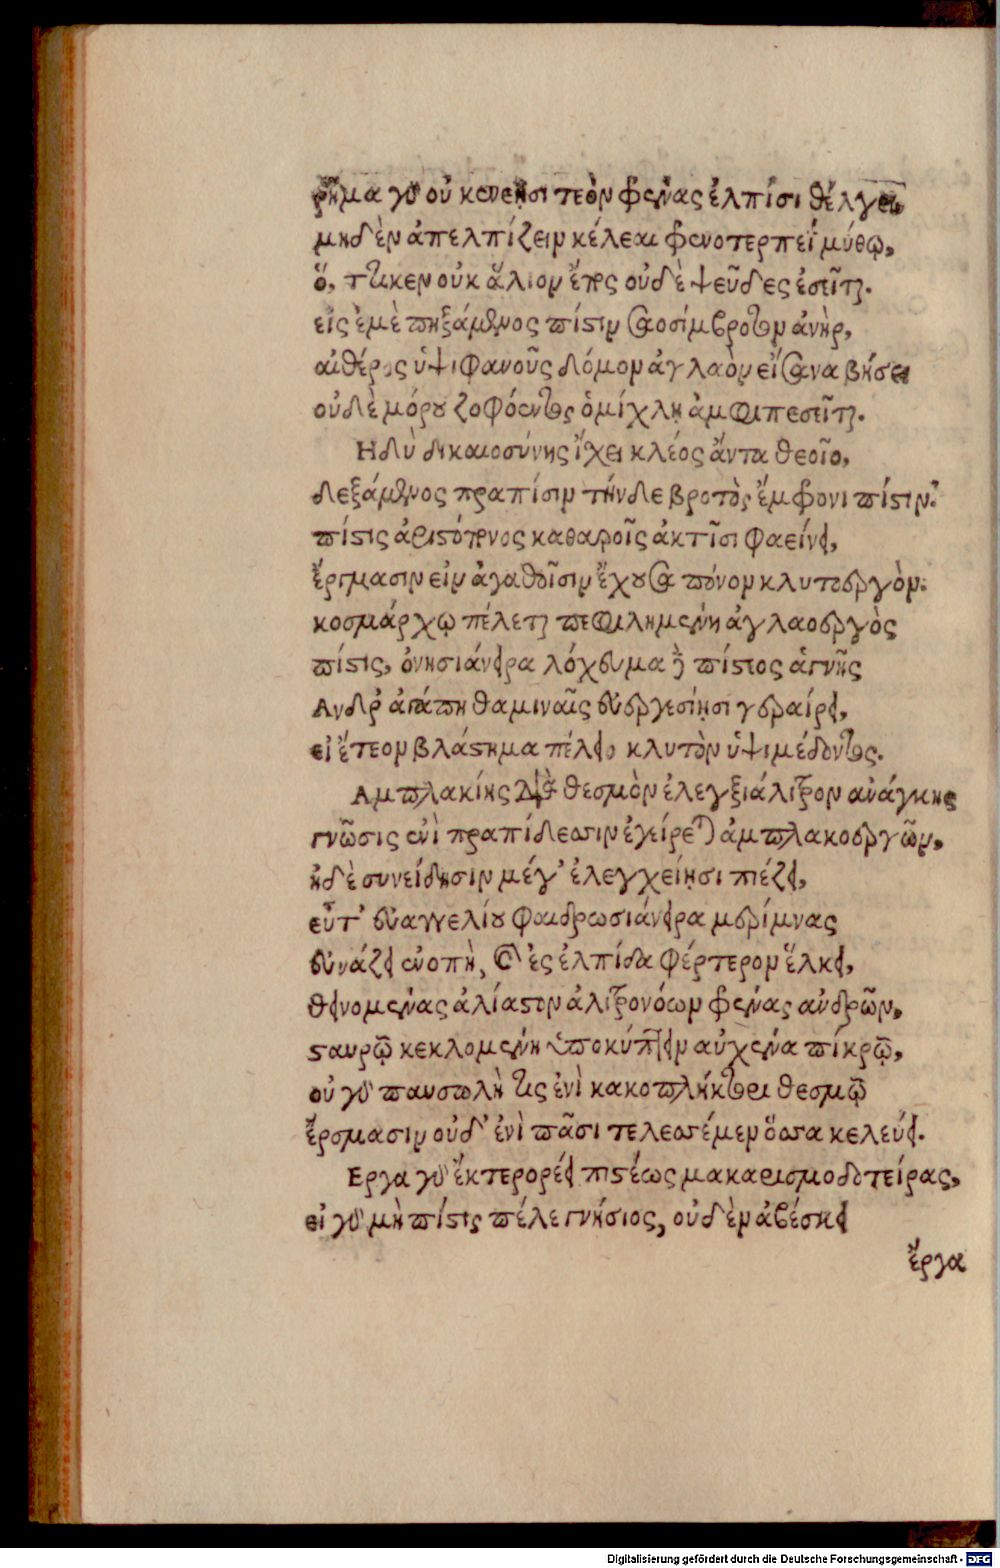 ῥῆμα γὸ οὐ κενεῇσι τεὸν φρένας ἐλπίσι θέλγει,
μηδὲν ἀπελπίζειν κέλεαι φρενοτερπέϊ μύθῳ,
ὅ, τικεν οὐκ ἅλιον ἔπος οὐδὲ ψεῦδες ἐσεῖται.
εἰς ἐμὲ πηξάμενος πίστιν σαοσίμβροτον ἀνὴρ,
αἰθέρος ὑψιφανοῦς δόμον ἀγλαὸν εἰσαναβήσει
οὐδὲ μόρου ζοφόεντος ὁμίχλῃ ἀμφιπεσεῖται.
Ηδὺ δικαιοσύνης ἴχει κλέος ἄντα θεοῖο,
δεξάμενος πραπίσιν τήνδε βροτὸς ἔμφρονι πίστιν.
πίστις ἀριστότερνος καθαροῖς ἀκτῖσι φαείνει,
ἔργμασιν εἰν ἀγαθοῖσιν ἔχουσα πόνον κλυτοεργὸν.
κοσμάρχῳ πέλεται πεφιλημένη ἀγλαοεργὸς
πίστις, ὀνησιάνειρα λόχευμα πίστιος ἁγνῆς
Ανδρ ἀγάπη θαμιναῖς εὐεργεσίῃσι γεραίρει,
εἰ ἔτεον βλάστημα πέλει κλυτὸν ὑψιμέδοντος.
Αμπλακίης διὰ θεσμὸν ἐλεγξιάλιτρον ἀνάγκης
γνῶσις ἐνὶ πραπίδεσσιν ἐγείρεται ἀμπλακοεργῶν,
ἠδὲ συνείδησιν μέγ' ἐλεγχείῃσι πέζει,
εὖτ' εὐαγγελίου φαιδρωσιάνειρα μερίμνας
εὐνάζει ἐνοπὴ, καὶ ἐς ἐλπίδα φέρτερον ἕλκει,
θεινομένας ἀλίαστον ἀλιτρονόων φρένας ἀνδρῶν,
σαυρῷ κεκλομένη ὑποκύπτειν αὐχένα πίκρῷ,
οὐ γὸ παυσωλὴ τις ἐνὶ κακοπλήκτορι θεσμῷ
ἔρσμασιν οὐδ' ἐνὶ πᾶσι τελεσσέμεν ὅσσα κελεύει.
Εργα γὸ ἔκτερορέει πιστέως μακαρισμοδοτείρας,
εἰ γὸ μὴ πίστις πέλε γνήσιος, οὐδὲν ἀβέσκει
ἔργα